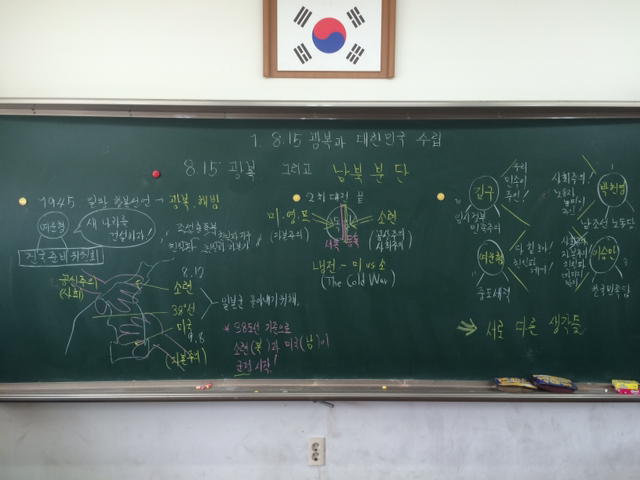 1. 8.15 광복과 대한민국 수립
8.15 광복 그리고 남북분단
1945 일본 항복선언 → 광복, 해방
여운형
새 나라를
건설하자!
건국준비위원회
조선총독부
공산주의
(사회)
8.17
소련
38°선
미국
9.8
(자본주의)
일본군 몰아내기 위해.
* 38도선 기준으로
소련(북)과 미국(남)이
군정 시작!
2차 대전 끝
미.영.프
(자본주의)
소련
(공산주의
사회주의)
서독
동독
냉전 - 미 vs 소
(The Cold War)
김구
임시정부
민족주의
우리
민족이
주인!
박헌영
사회주의!
노동자
농민이
주인!
남조선 노동당
여운형
중도세력
다 함께!
친일파
이승만
자본주의
한국민주당
⇒ 서로 다른 생각들